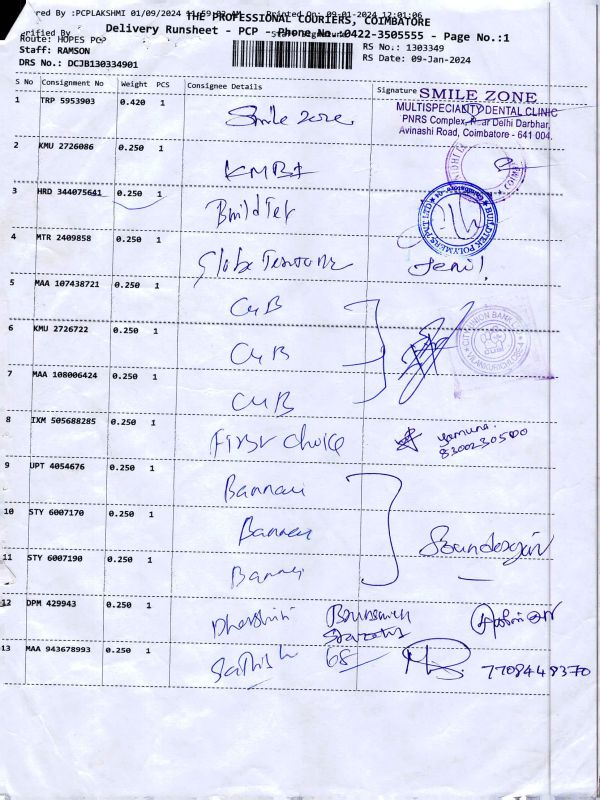 ered By :PCPLAKSHMI 01/09/2024 11:59:02 AM Printed On: 09-01-2024 12:01:06
THE PROFESSIONAL COURIERS, COIMBATORE
Delivery Runsheet - PCP - Phone No.:0422-3505555 - Page No.:1
erified By
Route: HOPES PCP
Staff: RAMSON
DRS No.: DCJB130334901
RS No.: 1303349
RS Date: 09-Jan-2024
S No Consignment No Weight PCS Consignee Details Signature
SMILE ZONE
MULTISPECIALITY DENTAL CLINIC
PNRS Complex, Near Delhi Darbhar,
Avinashi Road, Coimbatore - 641 004.
1 TRP 5953903 0.420 1 Smile zone
2 KMU 2726086 0.250 1 KMBI
3 HRD 344075641 0.250 1 BuildTek
BUILDTEK POLYMERS PVT LTD
4 MTR 2409858 0.250 1 Globe
5 MAA 107438721 0.250 1 CUB
6 KMU 2726722 0.250 1 CUB
CITY UNION BANK
7 MAA 108006424 0.250 1 CUB
8 IXM 505688285 0.250 1 First choice Yamuna. 8300230500
9 UPT 4054676 0.250 1 Bannari
10 STY 6007170 0.250 1 Bannari
11 STY 6007190 0.250 1 Bannari
12 DPM 429943 0.250 1 Dharshini
13 MAA 943678993 0.250 1 Sathish 68 7708448370